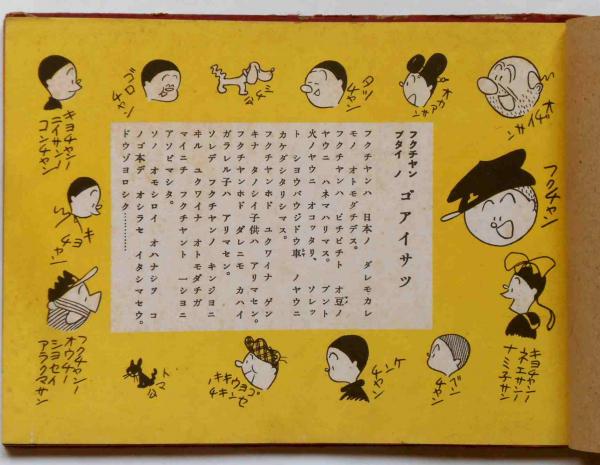 フクチャン
ブタイノ
ゴアイサツ
フクチャンハ 日本ノ ダレモカレ
モノ オトモダチデス。
フクチャンハ ピチピチト オ豆ノ
ヤウニ ハネマハリマス。プント
火ノヤウニ オコッタリ、ソレッ
ト ショウバウジドウ車ノヤウニ
カケダシタリシマス。
フクチャンホド ユクヮイナ ゲン
キナ タノシイ子供ハ アリマセン。
フクチャンホド ダレニモ カハイ
ガラレル子ハ アリマセン。
ソレデ フクチャンノ キンジョニ
ヰル ユクヮイナ オトモダチガ
マイニチ フクチャント 一ショニ
アソビマシタ。
ソノ オモシロイ オハナシヲ コ
ノゴ本デ オシラセ イタシマセウ。
ドウゾヨロシク…………
オヂイサン
オカアサン
タッチャン
ミチ公
ゴロチャン
キヨチャンノ
ニイサンノ
コンチャン
フクチャン
キヨチャン
キヨチャンノ
ネエサンノ
ナミ子サン
フクチャンノ
オウチノ
ショセイ
アラクマサン
トマ公
ケンチャン
ボンチャン